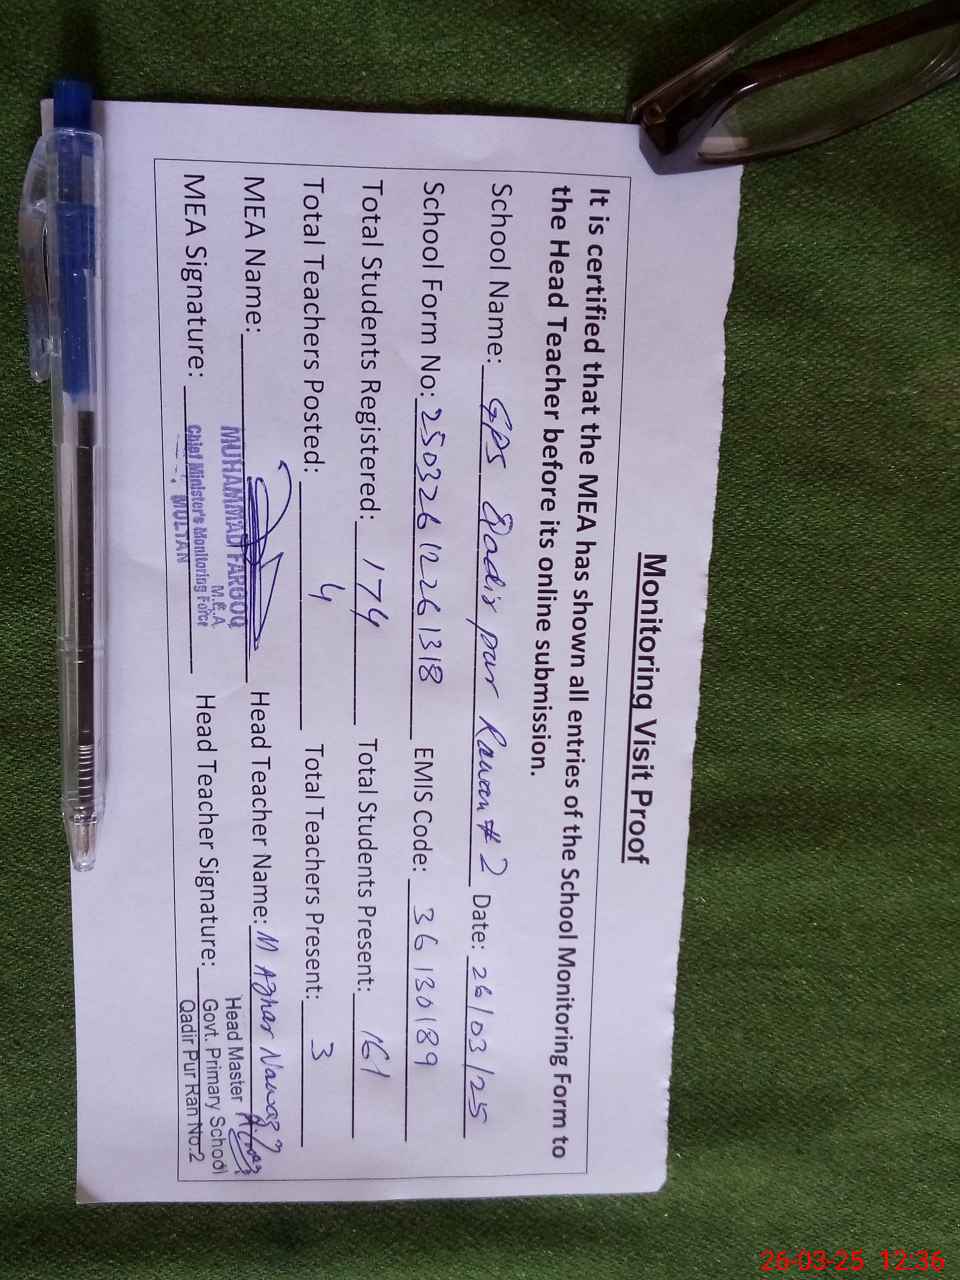 Monitoring Visit Proof
It is certified that the MEA has shown all entries of the School Monitoring Form to
the Head Teacher before its online submission.
School Name: GPS Qadir pur Rawan # 2 Date: 26/03/25
School Form No: 250326 1226 1318 EMIS Code: 36130189
Total Students Registered: 174 Total Students Present: 161
Total Teachers Posted: 4 Total Teachers Present: 3
MEA Name: Head Teacher Name: M Azhar Nawaz
MUHAMMAD FAROOQ
M.E.A
Chief Minister's Monitoring Force
MULTAN
MEA Signature: Head Teacher Signature:
Head Master
Govt. Primary School
Qadir Pur Ran No.2
26-03-25 12:36